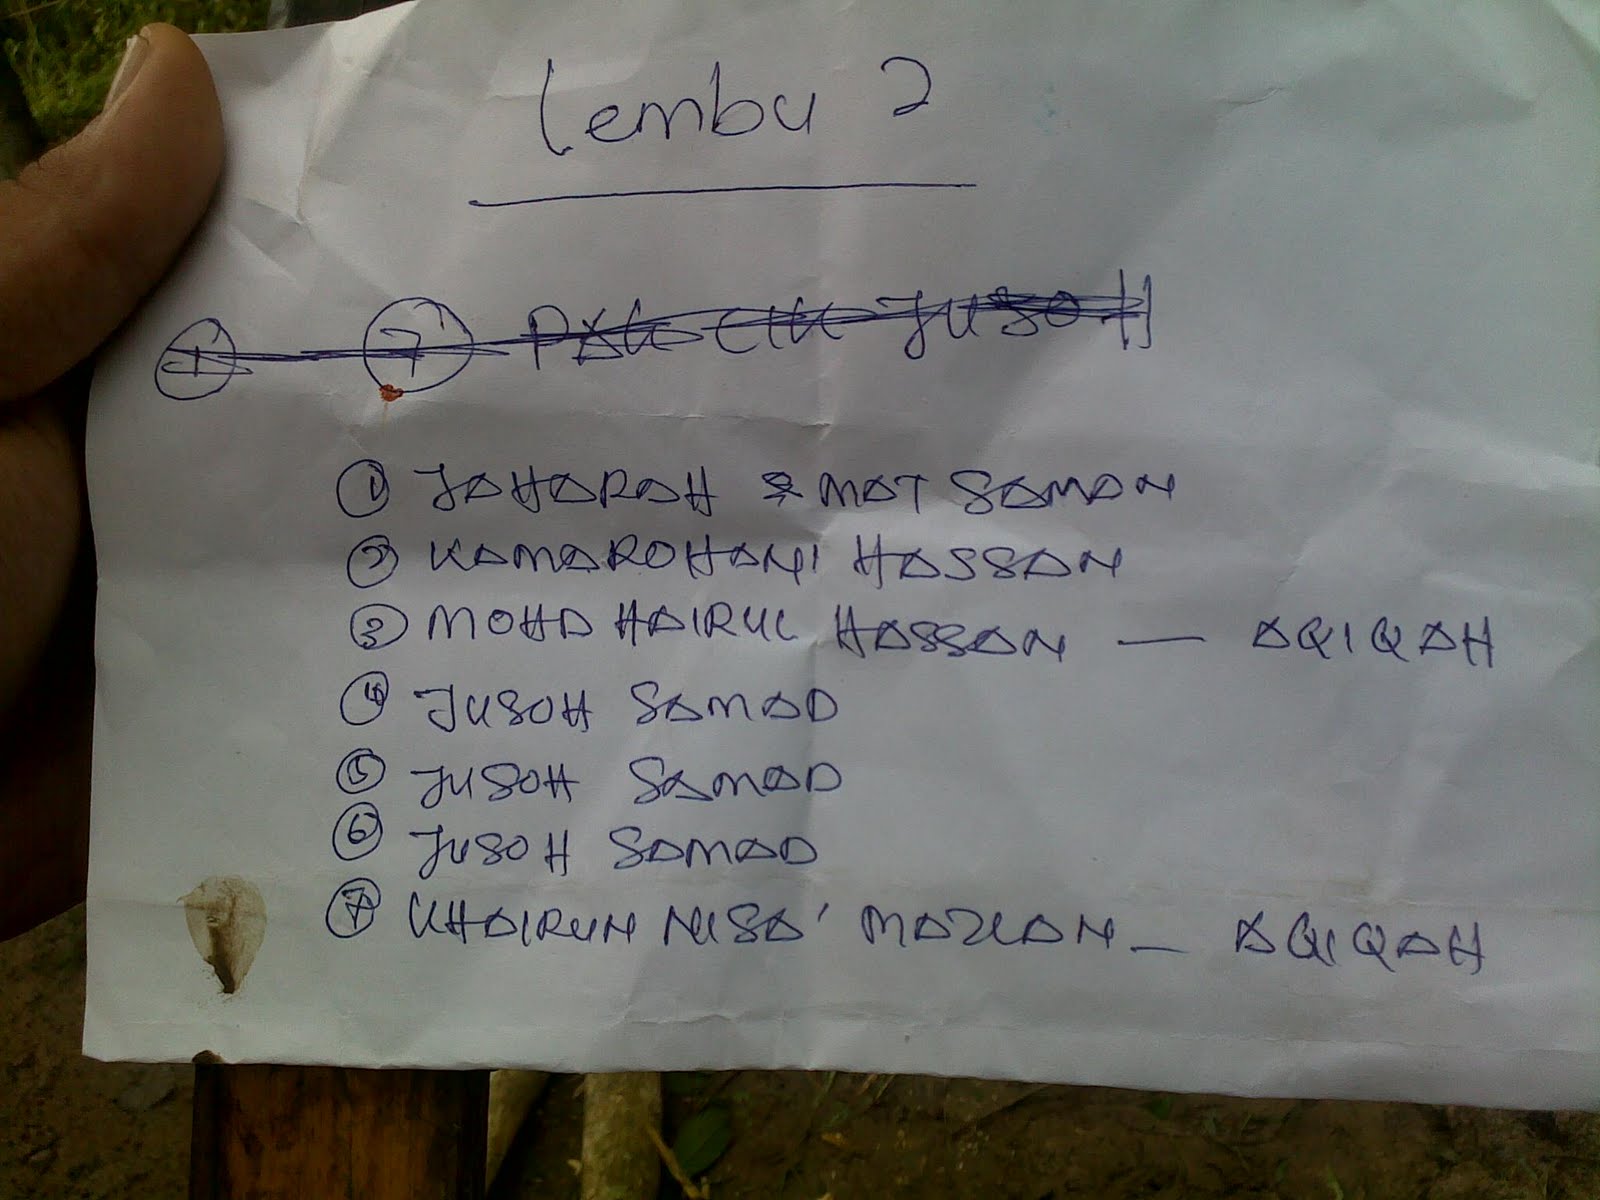 Lembu 2
1 7 PAK CIK JUSOH
1 JAHARAH MAT SAMAN
2 KAMAROHANI HASSAN
3 MOHD HAIRUL HASSAN — AQIQAH
4 JUSOH SAMAD
5 JUSOH SAMAD
6 JUSOH SAMAD
7 KHAIRUN NISA' MAZLAN — AQIQAH